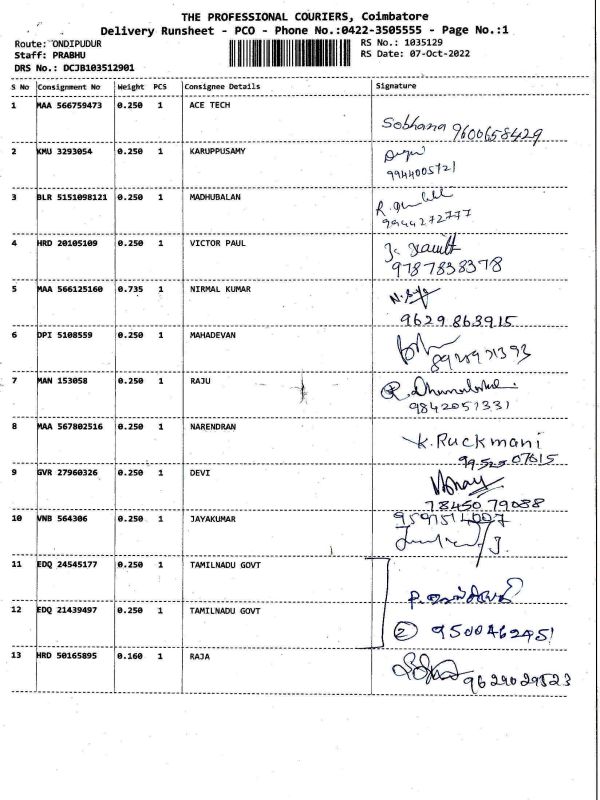 THE PROFESSIONAL COURIERS, Coimbatore
Delivery Runsheet - PCO - Phone No.:0422-3505555 - Page No.:1
Route: ONDIPUDUR
RS No.: 1035129
Staff: PRABHU
RS Date: 07-Oct-2022
DRS No.: DCJB103512901
S No Consignment No Weight PCS Consignee Details Signature
1 MAA 566759473 0.250 1 ACE TECH
Sobhana 9600658429
2 KMU 3293054 0.250 1 KARUPPUSAMY
9944005721
3 BLR 5151098121 0.250 1 MADHUBALAN
9944272777
4 HRD 20105109 0.250 1 VICTOR PAUL
9787838378
5 MAA 566125160 0.735 1 NIRMAL KUMAR
9629863915
6 DPI 5108559 0.250 1 MAHADEVAN
7 MAN 153058 0.250 1 RAJU
9842051331
8 MAA 567802516 0.250 1 NARENDRAN
K. Ruckmani
99525 07615
9 GVR 27960326 0.250 1 DEVI
78450 79088
10 VNB 564306 0.250 1 JAYAKUMAR
11 EDQ 24545177 0.250 1 TAMILNADU GOVT
12 EDQ 21439497 0.250 1 TAMILNADU GOVT
2 9500462451
13 HRD 50165895 0.160 1 RAJA
9629029523